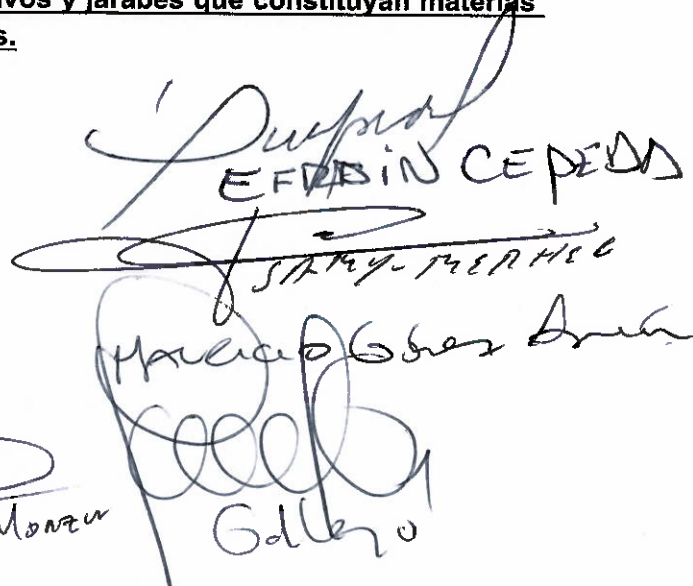 ivos y jarabes que constituyan materias
s.
EFRAIN CEPEDA
SAMY-MERHEG
Mauricio Gómez Amín
Monzur
Gallego